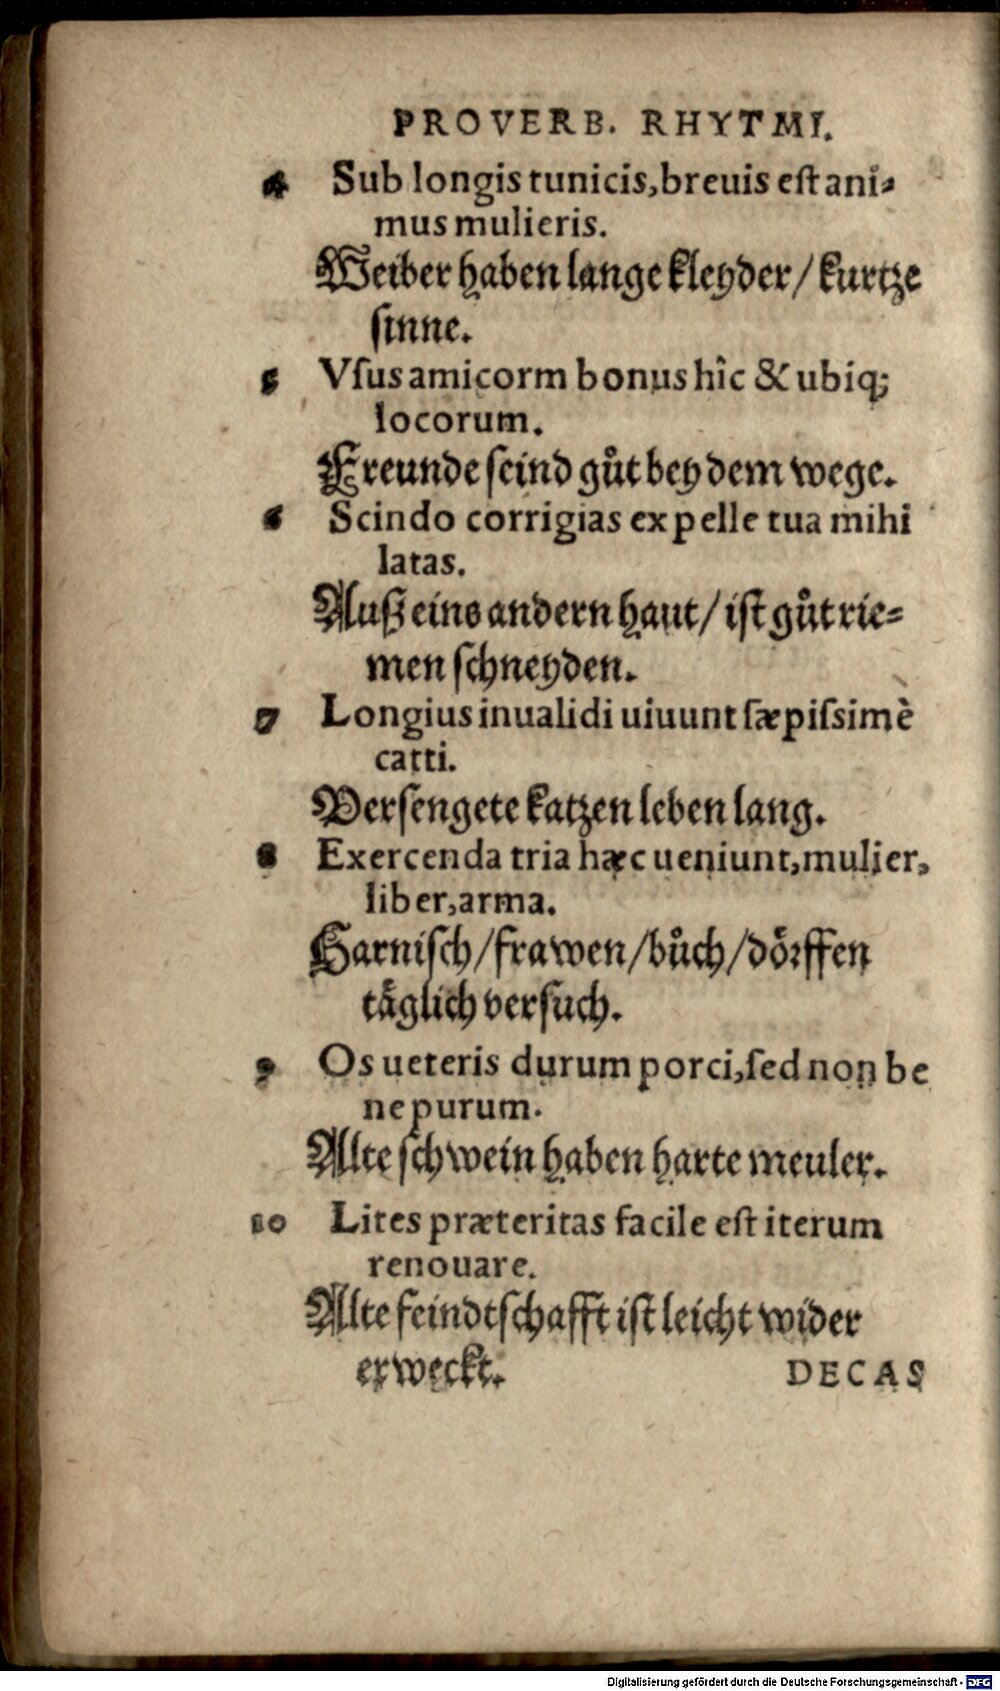 PROVERB. RHYTMI.
4 Sub longis tunicis, breuis est ani-
mus mulieris.
Weiber haben lange kleyder / kurtze
sinne.
5 Vsus amicorm bonus hîc & ubiq;
locorum.
Freunde seind gůt bey dem wege.
6 Scindo corrigias ex pelle tua mihi
latas.
Auß eins andern haut / ist gůt rie-
men schneyden.
7 Longius inualidi uiuunt sæpissimè
catti.
Versengete katzen leben lang.
8 Exercenda tria hæc ueniunt, mulier,
liber, arma.
Harnisch / frawen / bůch / doͤrffen
taͤglich versuch.
9 Os ueteris durum porci, sed non be
ne purum.
Alte schwein haben harte meuler.
10 Lites præteritas facile est iterum
renouare.
Alte feindtschafft ist leicht wider
erweckt.
DECAS
Digitalisierung gefördert durch die Deutsche Forschungsgemeinschaft - DFG